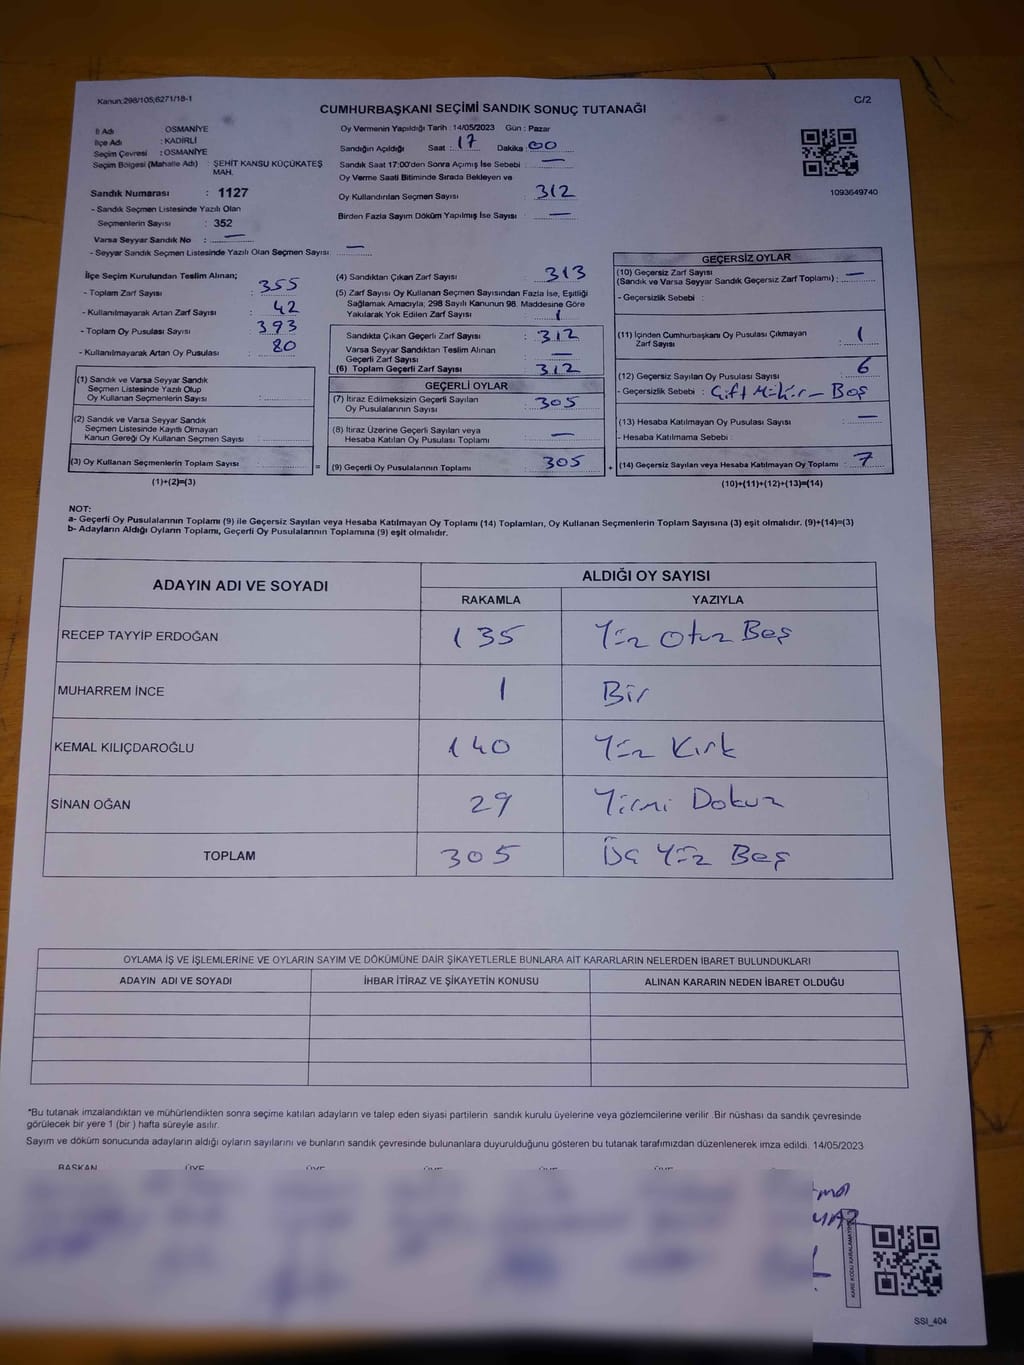 Kanun;298/105;6271/18-1
CUMHURBAŞKANI SEÇİMİ SANDIK SONUÇ TUTANAĞI
C/2
İl Adı OSMANİYE
İlçe Adı : KADİRLİ
Seçim Çevresi : OSMANİYE
Seçim Bölgesi (Mahalle Adı) : ŞEHİT KANSU KÜÇÜKATEŞ MAH.
Sandık Numarası : 1127
- Sandık Seçmen Listesinde Yazılı Olan
Seçmenlerin Sayısı : 352
Varsa Seyyar Sandık No : —
- Seyyar Sandık Seçmen Listesinde Yazılı Olan Seçmen Sayısı : —
Oy Vermenin Yapıldığı Tarih : 14/05/2023 Gün : Pazar
Sandığın Açıldığı Saat : 17 Dakika : 00
Sandık Saat 17:00'den Sonra Açılmış İse Sebebi : —
Oy Verme Saati Bitiminde Sırada Bekleyen ve
Oy Kullandırılan Seçmen Sayısı : 312
Birden Fazla Sayım Döküm Yapılmış İse Sayısı : —
1093649740
İlçe Seçim Kurulundan Teslim Alınan;
- Toplam Zarf Sayısı : 355
- Kullanılmayarak Artan Zarf Sayısı : 42
- Toplam Oy Pusulası Sayısı : 393
- Kullanılmayarak Artan Oy Pusulası : 80
(1) Sandık ve Varsa Seyyar Sandık
Seçmen Listesinde Yazılı Olup
Oy Kullanan Seçmenlerin Sayısı :
(2) Sandık ve Varsa Seyyar Sandık
Seçmen Listesinde Kayıtlı Olmayan
Kanun Gereği Oy Kullanan Seçmen Sayısı :
(3) Oy Kullanan Seçmenlerin Toplam Sayısı :
(1)+(2)=(3)
(4) Sandıktan Çıkan Zarf Sayısı : 313
(5) Zarf Sayısı Oy Kullanan Seçmen Sayısından Fazla İse, Eşitliği
Sağlamak Amacıyla; 298 Sayılı Kanunun 98. Maddesine Göre
Yakılarak Yok Edilen Zarf Sayısı : 1
Sandıkta Çıkan Geçerli Zarf Sayısı : 312
Varsa Seyyar Sandıktan Teslim Alınan
Geçerli Zarf Sayısı : —
(6) Toplam Geçerli Zarf Sayısı : 312
GEÇERLİ OYLAR
(7) İtiraz Edilmeksizin Geçerli Sayılan
Oy Pusulalarının Sayısı : 305
(8) İtiraz Üzerine Geçerli Sayılan veya
Hesaba Katılan Oy Pusulası Toplamı : —
= (9) Geçerli Oy Pusulalarının Toplamı : 305 +
GEÇERSİZ OYLAR
(10) Geçersiz Zarf Sayısı
(Sandık ve Varsa Seyyar Sandık Geçersiz Zarf Toplamı) : —
- Geçersizlik Sebebi :
(11) İçinden Cumhurbaşkanı Oy Pusulası Çıkmayan
Zarf Sayısı : 1
(12) Geçersiz Sayılan Oy Pusulası Sayısı : 6
- Geçersizlik Sebebi : Çift Mühür - Boş
(13) Hesaba Katılmayan Oy Pusulası Sayısı : —
- Hesaba Katılmama Sebebi :
(14) Geçersiz Sayılan veya Hesaba Katılmayan Oy Toplamı : 7
(10)+(11)+(12)+(13)=(14)
NOT:
a- Geçerli Oy Pusulalarının Toplamı (9) ile Geçersiz Sayılan veya Hesaba Katılmayan Oy Toplamı (14) Toplamları, Oy Kullanan Seçmenlerin Toplam Sayısına (3) eşit olmalıdır. (9)+(14)=(3)
b- Adayların Aldığı Oyların Toplamı, Geçerli Oy Pusulalarının Toplamına (9) eşit olmalıdır.
ADAYIN ADI VE SOYADI ALDIĞI OY SAYISI
RAKAMLA YAZIYLA
RECEP TAYYİP ERDOĞAN 135 Yüz Otuz Beş
MUHARREM İNCE 1 Bir
KEMAL KILIÇDAROĞLU 140 Yüz Kırk
SİNAN OĞAN 29 Yirmi Dokuz
TOPLAM 305 Üç Yüz Beş
OYLAMA İŞ VE İŞLEMLERİNE VE OYLARIN SAYIM VE DÖKÜMÜNE DAİR ŞİKAYETLERLE BUNLARA AİT KARARLARIN NELERDEN İBARET BULUNDUKLARI
ADAYIN ADI VE SOYADI İHBAR İTİRAZ VE ŞİKAYETİN KONUSU ALINAN KARARIN NEDEN İBARET OLDUĞU
*Bu tutanak imzalandıktan ve mühürlendikten sonra seçime katılan adayların ve talep eden siyasi partilerin sandık kurulu üyelerine veya gözlemcilerine verilir. Bir nüshası da sandık çevresinde
görülecek bir yere 1 (bir) hafta süreyle asılır.
Sayım ve döküm sonucunda adayların aldığı oyların sayılarını ve bunların sandık çevresinde bulunanlara duyurulduğunu gösteren bu tutanak tarafımızdan düzenlenerek imza edildi. 14/05/2023
BAŞKAN ÜYE ÜYE ÜYE ÜYE ÜYE
KARE KODU KARALAMAYINIZ
SSI_404